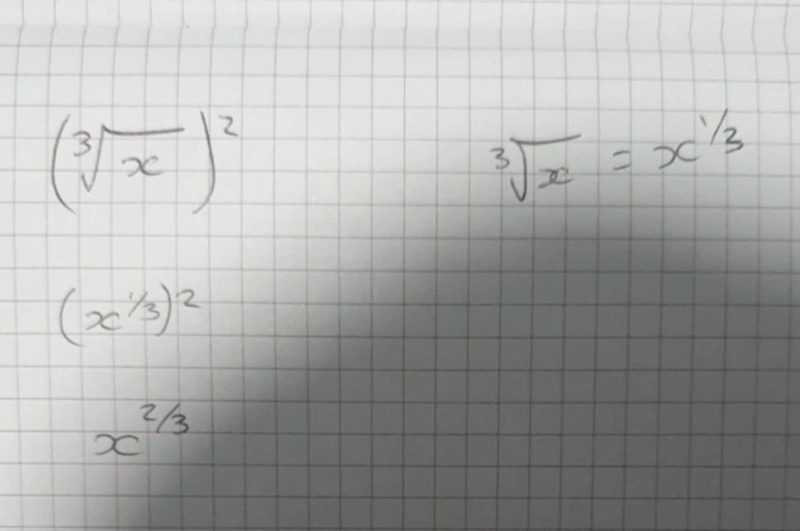 (∛x)² ∛x = x^1/3
(x^1/3)²
x^2/3